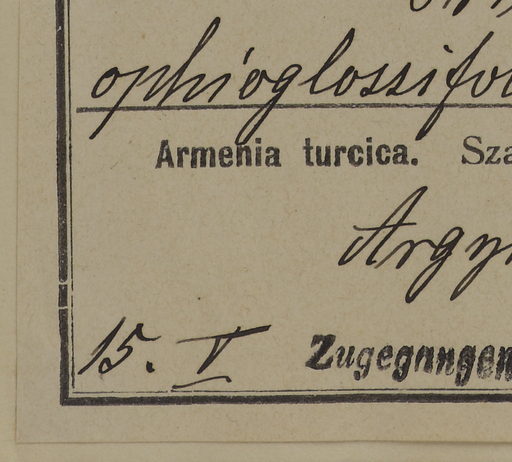 ophioglossifo
Armenia turcica. Sza
Argy
15. V
Zugegangen